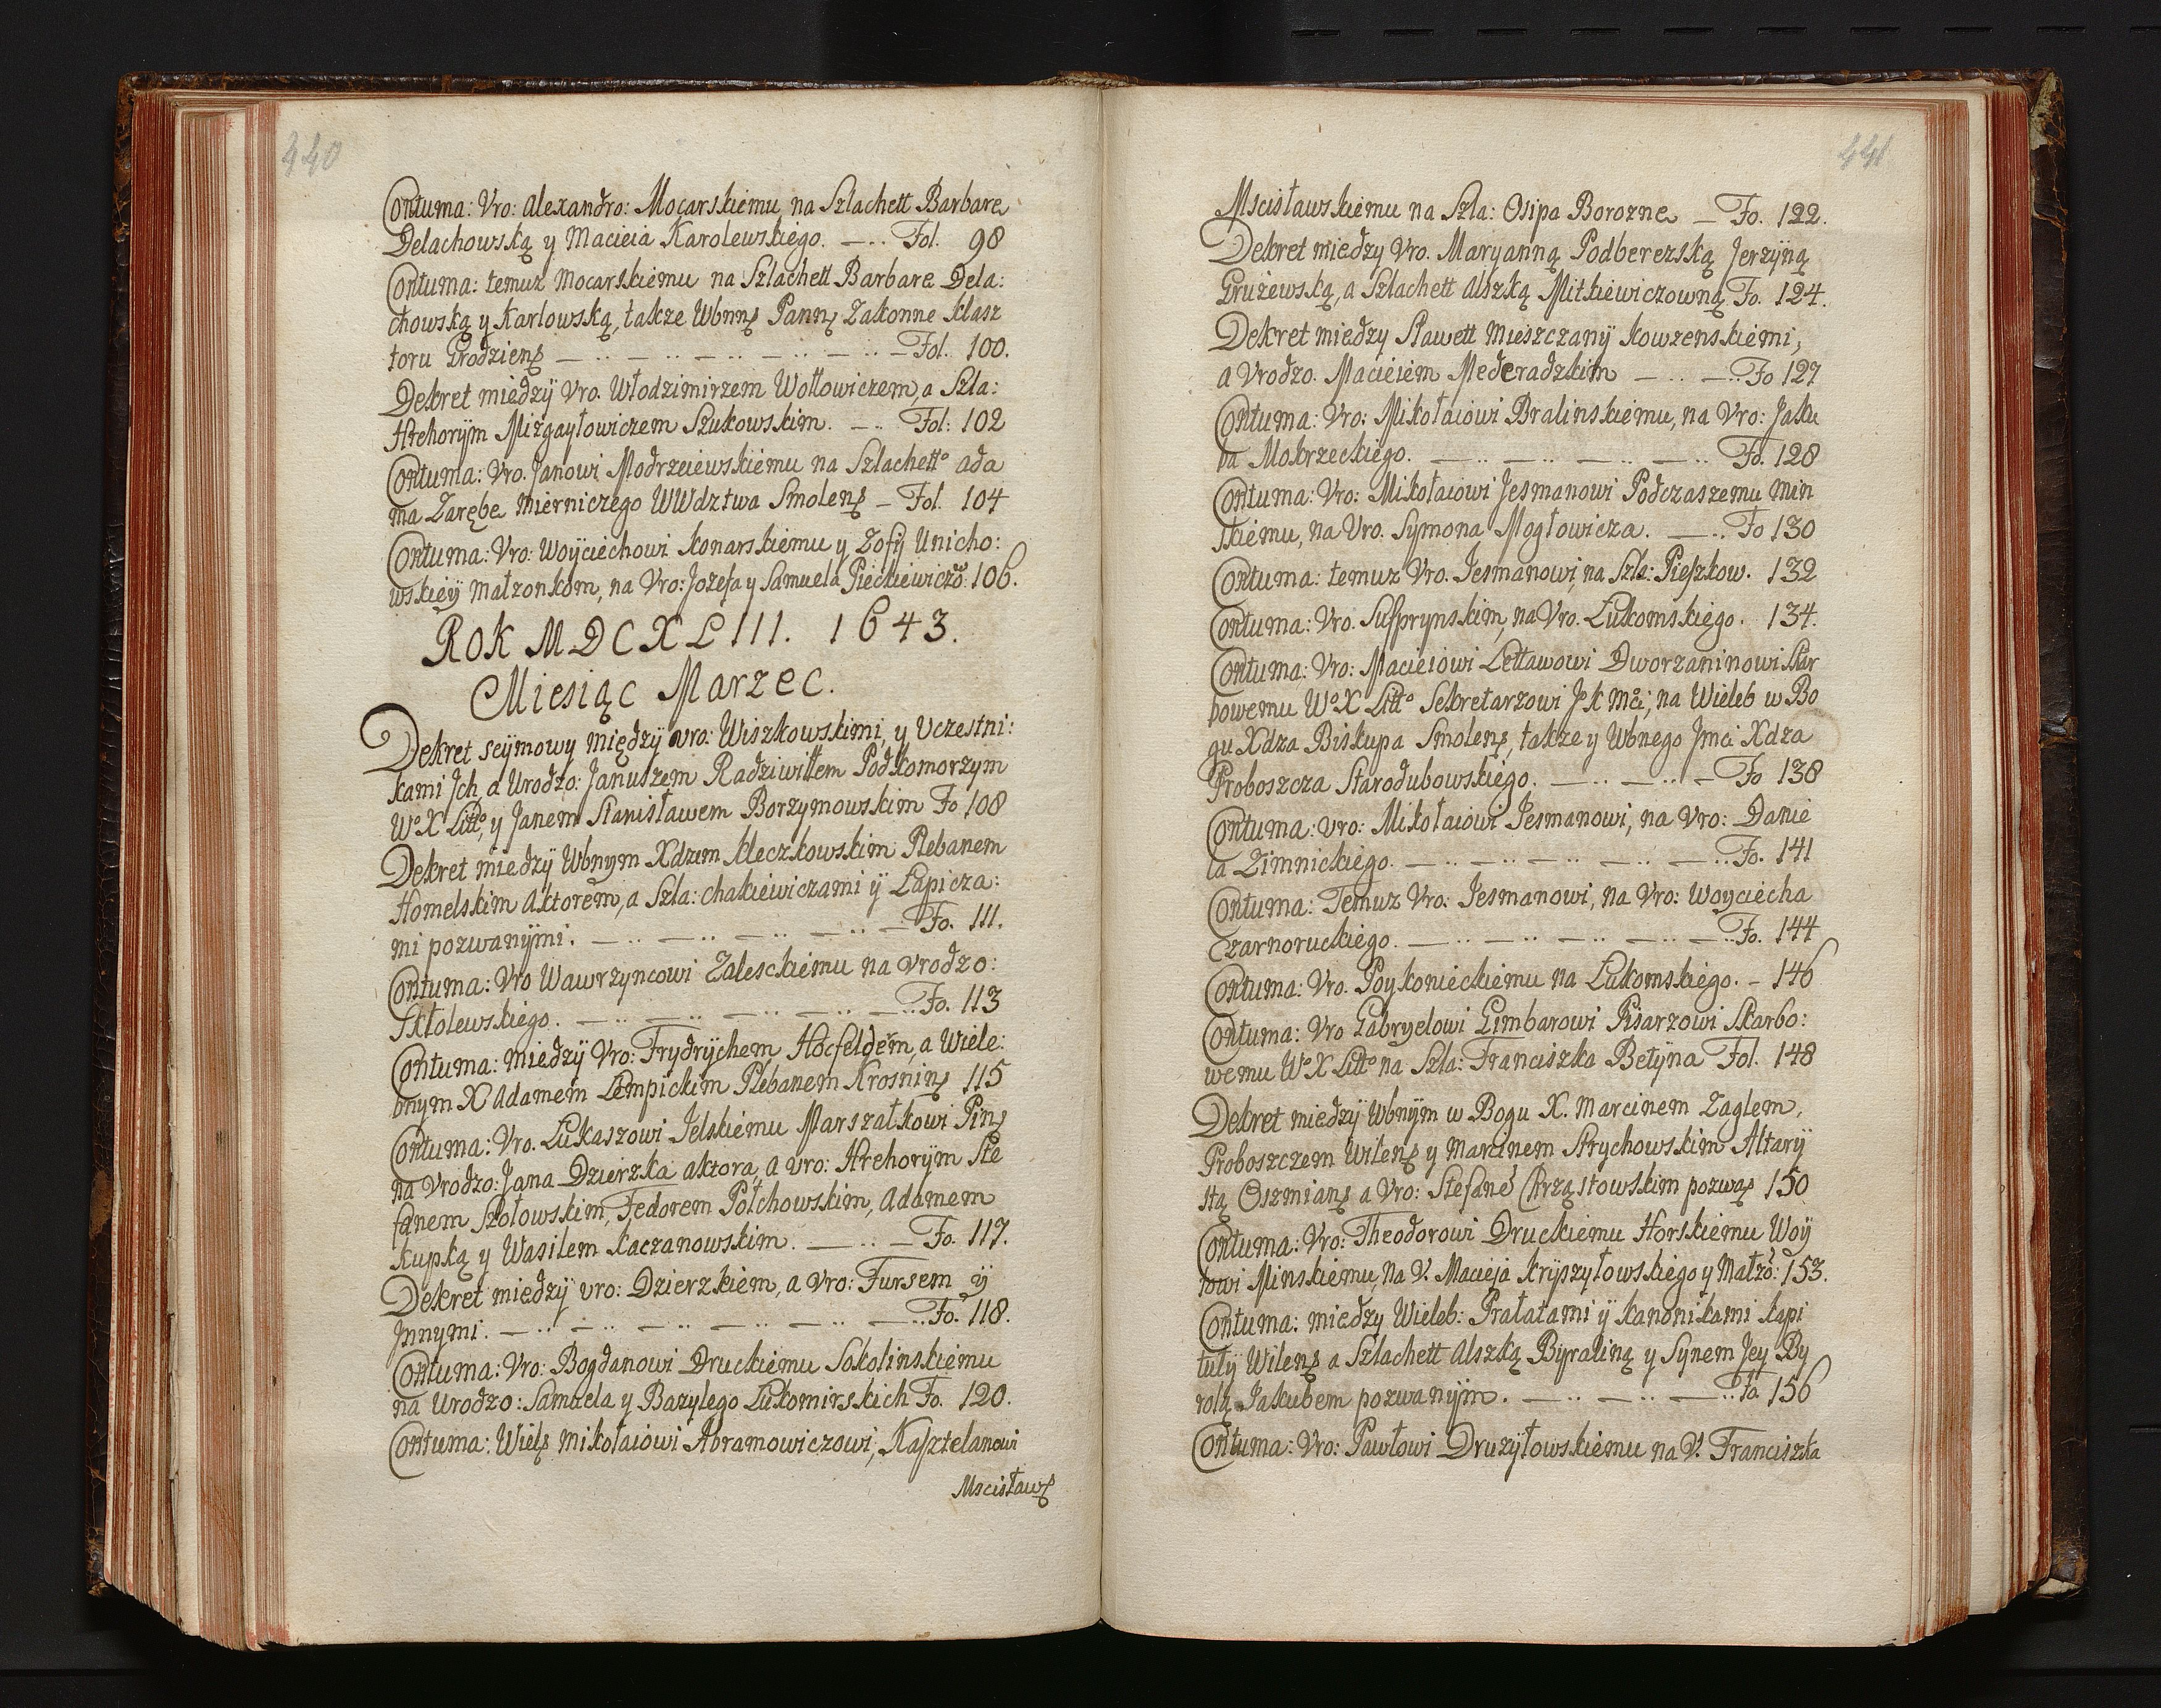 440
Contuma: Vro: Alexandro: Mocarskiemu na Szlachett Barbare
Delachowską y Macieia Karolewskiego. — .. Fol. 98
Contuma: temuz Mocarskiemu na Szlachett Barbare Dela:
chowską y Karlowską, takze Wbnnę Pannę Zakonne klasz
toru Grodzienß — .. — .. — .. — .. — .. — Fol. 100.
Dekret miedzÿ Vro. Włodzimirzem Wołłowiczem, a Szla:
Hrehorÿm Mizgayłowiczem Szukowskim. — .. Fol: 102
Contuma: Vro. Janowi Modrzeiewskiemu na Szlachetto Ada
ma Zarębe Mierniczego WWdztwa Smolenß — Fol. 104
Contuma: Vro: Woyciechowi Konarskiemu y Zofÿ Unicho:
wskieÿ Małzonkom, na Vro: Jozefa y Samuela Pieckiewiczo: 106.
ROK MDCXLIII. 1643.
Miesiąc Marzec.
Dekret seÿmowy międzÿ vro: Wiszkowskimi, y Vczestni:
kami Jch, a Urodzo: Januszem Radziwiłłem Podkomorzym
Wo X Litto, y Janem Stanisławem Borzymowskim Fo 108
Dekret miedzÿ Wbnym Xdzem Kleczkowskim Plebanem
Homelskim Aktorem, a Szla: Chakiewiczami ÿ Łapicza:
mi pozwanÿmi. — .. — .. — .. — .. — Fo. 111.
Contuma: Vro Wawrzyncowi Zalesckiemu na Vrodzo:
Sktolewskiego. — .. — .. — .. — .. — .. Fo. 113
Contuma: miedzÿ Vro: Frydrÿchem Hocfeldem, a Wiele:
bnym X Adamem Łempickim Plebanem Krosninß 115
Contuma: Vro. Łukaszowi Jelskiemu Marszałkowi Pinß
na Vrodzo: Jana Dzierzka aktora, a vro: Hrehorÿm Ste
fanem Szołowskim, Fedorem Połchowskim, Adamem
Kupką y Wasilem Kaczanowskim. — .. — Fo. 117.
Dekret miedzÿ vro: Dzierzkiem, a Vro: Fursem ÿ
Jnnymi. — .. — .. — .. — .. — .. — .. Fo. 118.
Contuma: Vro: Bogdanowi Druckiemu Sokolinskiemu
na Urodzo: Samuela y Bazylego Łukomirskich Fo. 120.
Contuma: Wielß Mikołaiowi Abramowiczowi, Kasztelanowi
Mscisławß
441
Mscisławskiemu na Szla: Osipa Borozne — Fo. 122.
Dekret miedzy Vro. Maryanną Podberezską Jerzÿną
Gruzewską, a Szlachett Alszką Mitkiewiczowną Fo. 124.
Dekret miedzy Sławett Mieszczanÿ Kowzenskiemi,
a Vrodzo. Macieiem Mederadzkim — .. — .. Fo 127
Contuma: Vro: Mikołaiowi Bralinskiemu, na Vro: Jaku
ba Mokrzeckiego. — .. — .. — .. — .. Fo. 128
Contuma: Vro: Mikołaiowi Jesmanowi Podczaszemu Min
skiemu, na Vro. Sÿmona Mogłowicza. — .. Fo 130
Contuma: temuz Vro. Jesmanowi, na Szla: Pieszkow. 132
Contuma: Vro. Susprynskim, na Vro. Łukomskiego. 134.
Contuma: Vro: Macieiowi Lettawowi Dworzaninowi Skar
bowemu Wo X Litto Sekretarzowi JK Mci, na Wieleb w Bo
gu Xdza Biskupa Smolenß, takze y Wbnego Jmci Xdza
Proboszcza Starodubowskiego. — .. — .. — Fo 138
Contuma: vro: Mikołaiowi Jesmanowi, na Vro: Danie
la Zimnickiego. — .. — .. — .. — .. — .. Fo. 141
Contuma: Temuz Vro: Jesmanowi, na Vro: Woyciecha
Czarnoruckiego. — .. — .. — .. — .. — .. Fo. 144
Contuma: Vro. Poykonieckiemu na Łukomskiego. — 146
Contuma: Vro Gabryelowi Gimbarowi Pisarzowi Skarbo:
wemu Wo X Litto na Szla: Franciszka Betÿna Fol. 148
Dekret miedzÿ Wbnÿm w Bogu X. Marcinem Zaglem,
Proboszczem Wilenß y Marcinem Strychowskim Altarÿ
stą Oszmianß a Vro: Stefane Chrząstowskim pozwaß 150
Contuma: Vro: Theodorowi Druckiemu Horskiemu Woÿ
towi Minskiemu, na V. Macieja Krÿszyłowskiego y Małzo: 153.
Contuma: miedzy Wieleb: Prałatami ÿ Kanonikami Kapi
tulÿ Wilenß a Szlachett Alszką Bÿraliną y Sÿnem Jey By
rolą Jakubem pozwanÿm. — .. — .. — .. Fo 156
Contuma: Vro: Pawłowi Druzÿłowskiemu na V. Franciszka